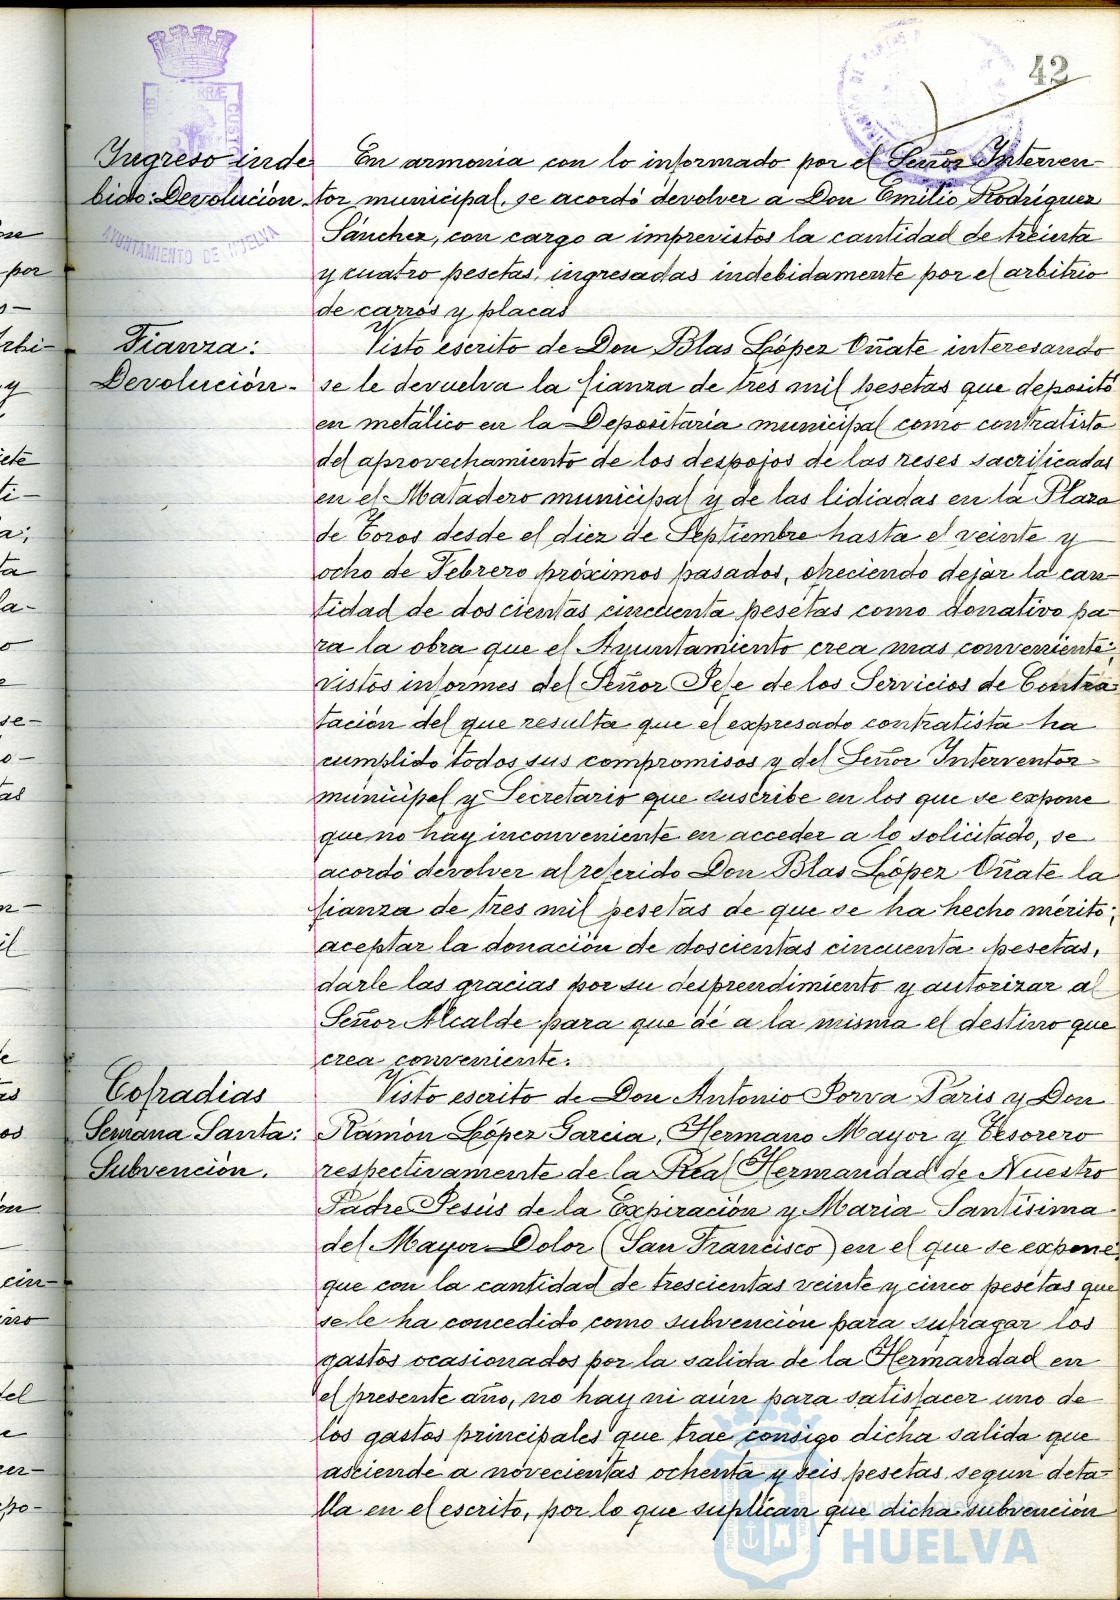 42
Ingreso inde
bido: Devolución.
En armonia con lo informado por el Señor Interven-
tor municipal, se acordó devolver a Don Emilio Rodríguez
Sánchez, con cargo a imprevistos la cantidad de treinta
y cuatro pesetas, ingresadas indebidamente por el arbitrio
de carros y placas
Fianza:
Devolución.
Visto escrito de Don Blas López Oñate interesando
se le devuelva la fianza de tres mil pesetas que depositó
en metálico en la Depositaria municipal como contratista
del aprovechamiento de los despojos de las reses sacrificadas
en el Matadero municipal y de las lidiadas en la Plaza
de Toros desde el diez de Septiembre hasta el veinte y
ocho de Febrero próximos pasados, ofreciendo dejar la can-
tidad de doscientas cincuenta pesetas como donativo pa-
ra la obra que el Ayuntamiento crea mas conveniente;
vistos informes del Señor Jefe de los Servicios de Contra-
tación del que resulta que el expresado contratista ha
cumplido todos sus compromisos y del Señor Interventor
municipal y Secretario que suscribe en los que se expone
que no hay inconveniente en acceder a lo solicitado, se
acordó devolver al referido Don Blas López Oñate la
fianza de tres mil pesetas de que se ha hecho mérito;
aceptar la donación de doscientas cincuenta pesetas,
darle las gracias por su desprendimiento y autorizar al
Señor Alcalde para que dé a la misma el destino que
crea conveniente.
Cofradias
Semana Santa:
Subvención.
Visto escrito de Don Antonio Jorva Paris y Don
Ramón López Garcia, Hermano Mayor y Tesorero
respectivamente de la Real Hermandad de Nuestro
Padre Jesús de la Expiración y Maria Santísima
del Mayor Dolor (San Francisco) en el que se expone
que con la cantidad de trescientas veinte y cinco pesetas que
se le ha concedido como subvención para sufragar los
gastos ocasionados por la salida de la Hermandad en
el presente año, no hay ni aún para satisfacer uno de
los gastos principales que trae consigo dicha salida que
asciende a novecientas ochenta y seis pesetas segun deta-
lla en el escrito, por lo que suplican que dicha subvención
AYUNTAMIENTO DE HUELVA
Ayuntamiento de
HUELVA